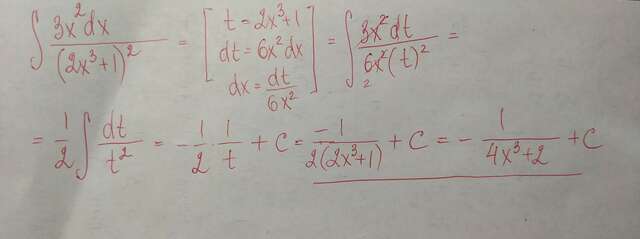 ∫ 3x²dx / (2x³+1)² = [ t = 2x³+1 dt = 6x²dx dx = dt/6x² ] = ∫ 3x²dt / 6x²(t)² =
2
= 1/2 ∫ dt/t² = - 1/2 · 1/t + C = -1 / 2(2x³+1) + C = - 1 / 4x³+2 + C